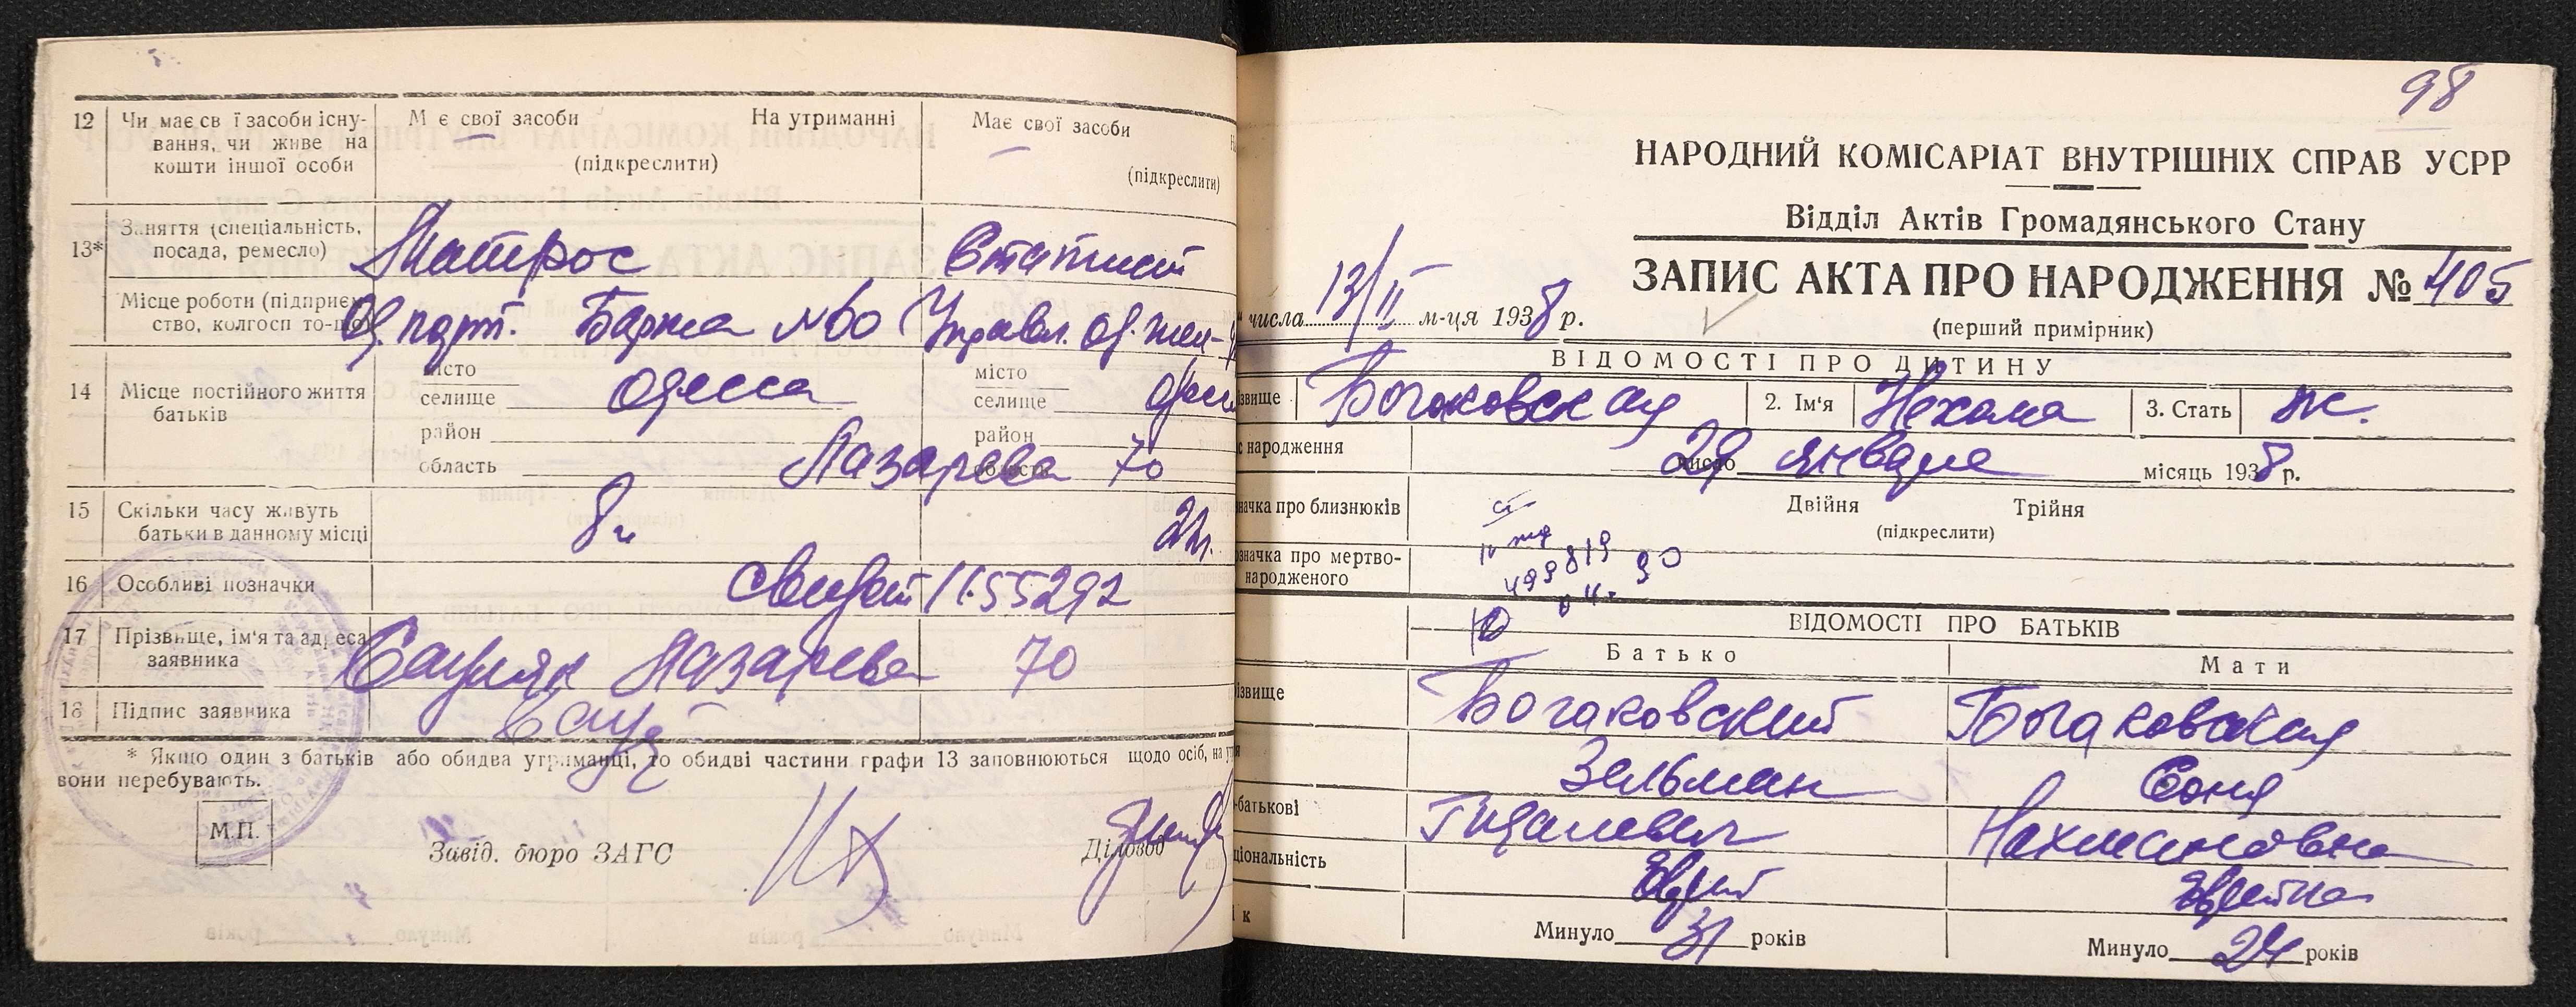 12 Чи має св ї засоби існу- М є свої засоби На утриманні Має свої засоби
вання, чи живе на
кошти іншої особи (підкреслити) (підкреслити)
13* Заняття (спеціальність, Матрос Статист
посада, ремесло)
Місце роботи (підприєм Од. порт. Баржа №60 Управл. Од. жел-
ство, колгосп то-що)
14 Місце постійного життя місто Одесса місто
батьків селище селище
район район
область Лазарева 70 область
15 Скільки часу живуть 8 г. 2 г.
батьки в данному місці
16 Особливі позначки 1155292
17 Прізвище, ім'я та адреса Лазарева 70
заявника
18 Підпис заявника
* Якщо один з батьків або обидва утриманці, то обидві частини графи 13 заповнюються щодо осіб, на
вони перебувають.
М.П. Завід. бюро ЗАГС Діловод
98
НАРОДНИЙ КОМІСАРІАТ ВНУТРІШНІХ СПРАВ УСРР
Відділ Актів Громадянського Стану
ЗАПИС АКТА ПРО НАРОДЖЕННЯ № 405
числа 13/II м-ця 1938 р. (перший примірник)
ВІДОМОСТІ ПРО ДИТИНУ
звище Богаковская 2. Ім'я Нехама 3. Стать ж.
с народження 29 число января місяць 1938 р.
значка про близнюків Двійня Трійня
(підкреслити)
означка про мертво-
народженого
499819 90
ВІДОМОСТІ ПРО БАТЬКІВ
Батько Мати
ізвище Богаковский Богаковская
Зельман Соня
-батькові Нахмановна
ціональність Еврей Еврейка
і к Минуло 31 років Минуло 24 років